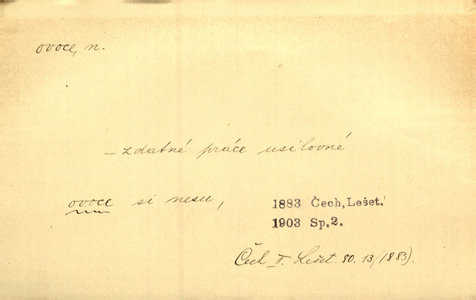 ovoce, n.
— zdatné práce usilovné
ovoce si nesu,
1883 Čech, Lešet.
1903 Sp. 2.
Čech II. Lešet. 80. 13 (1883).